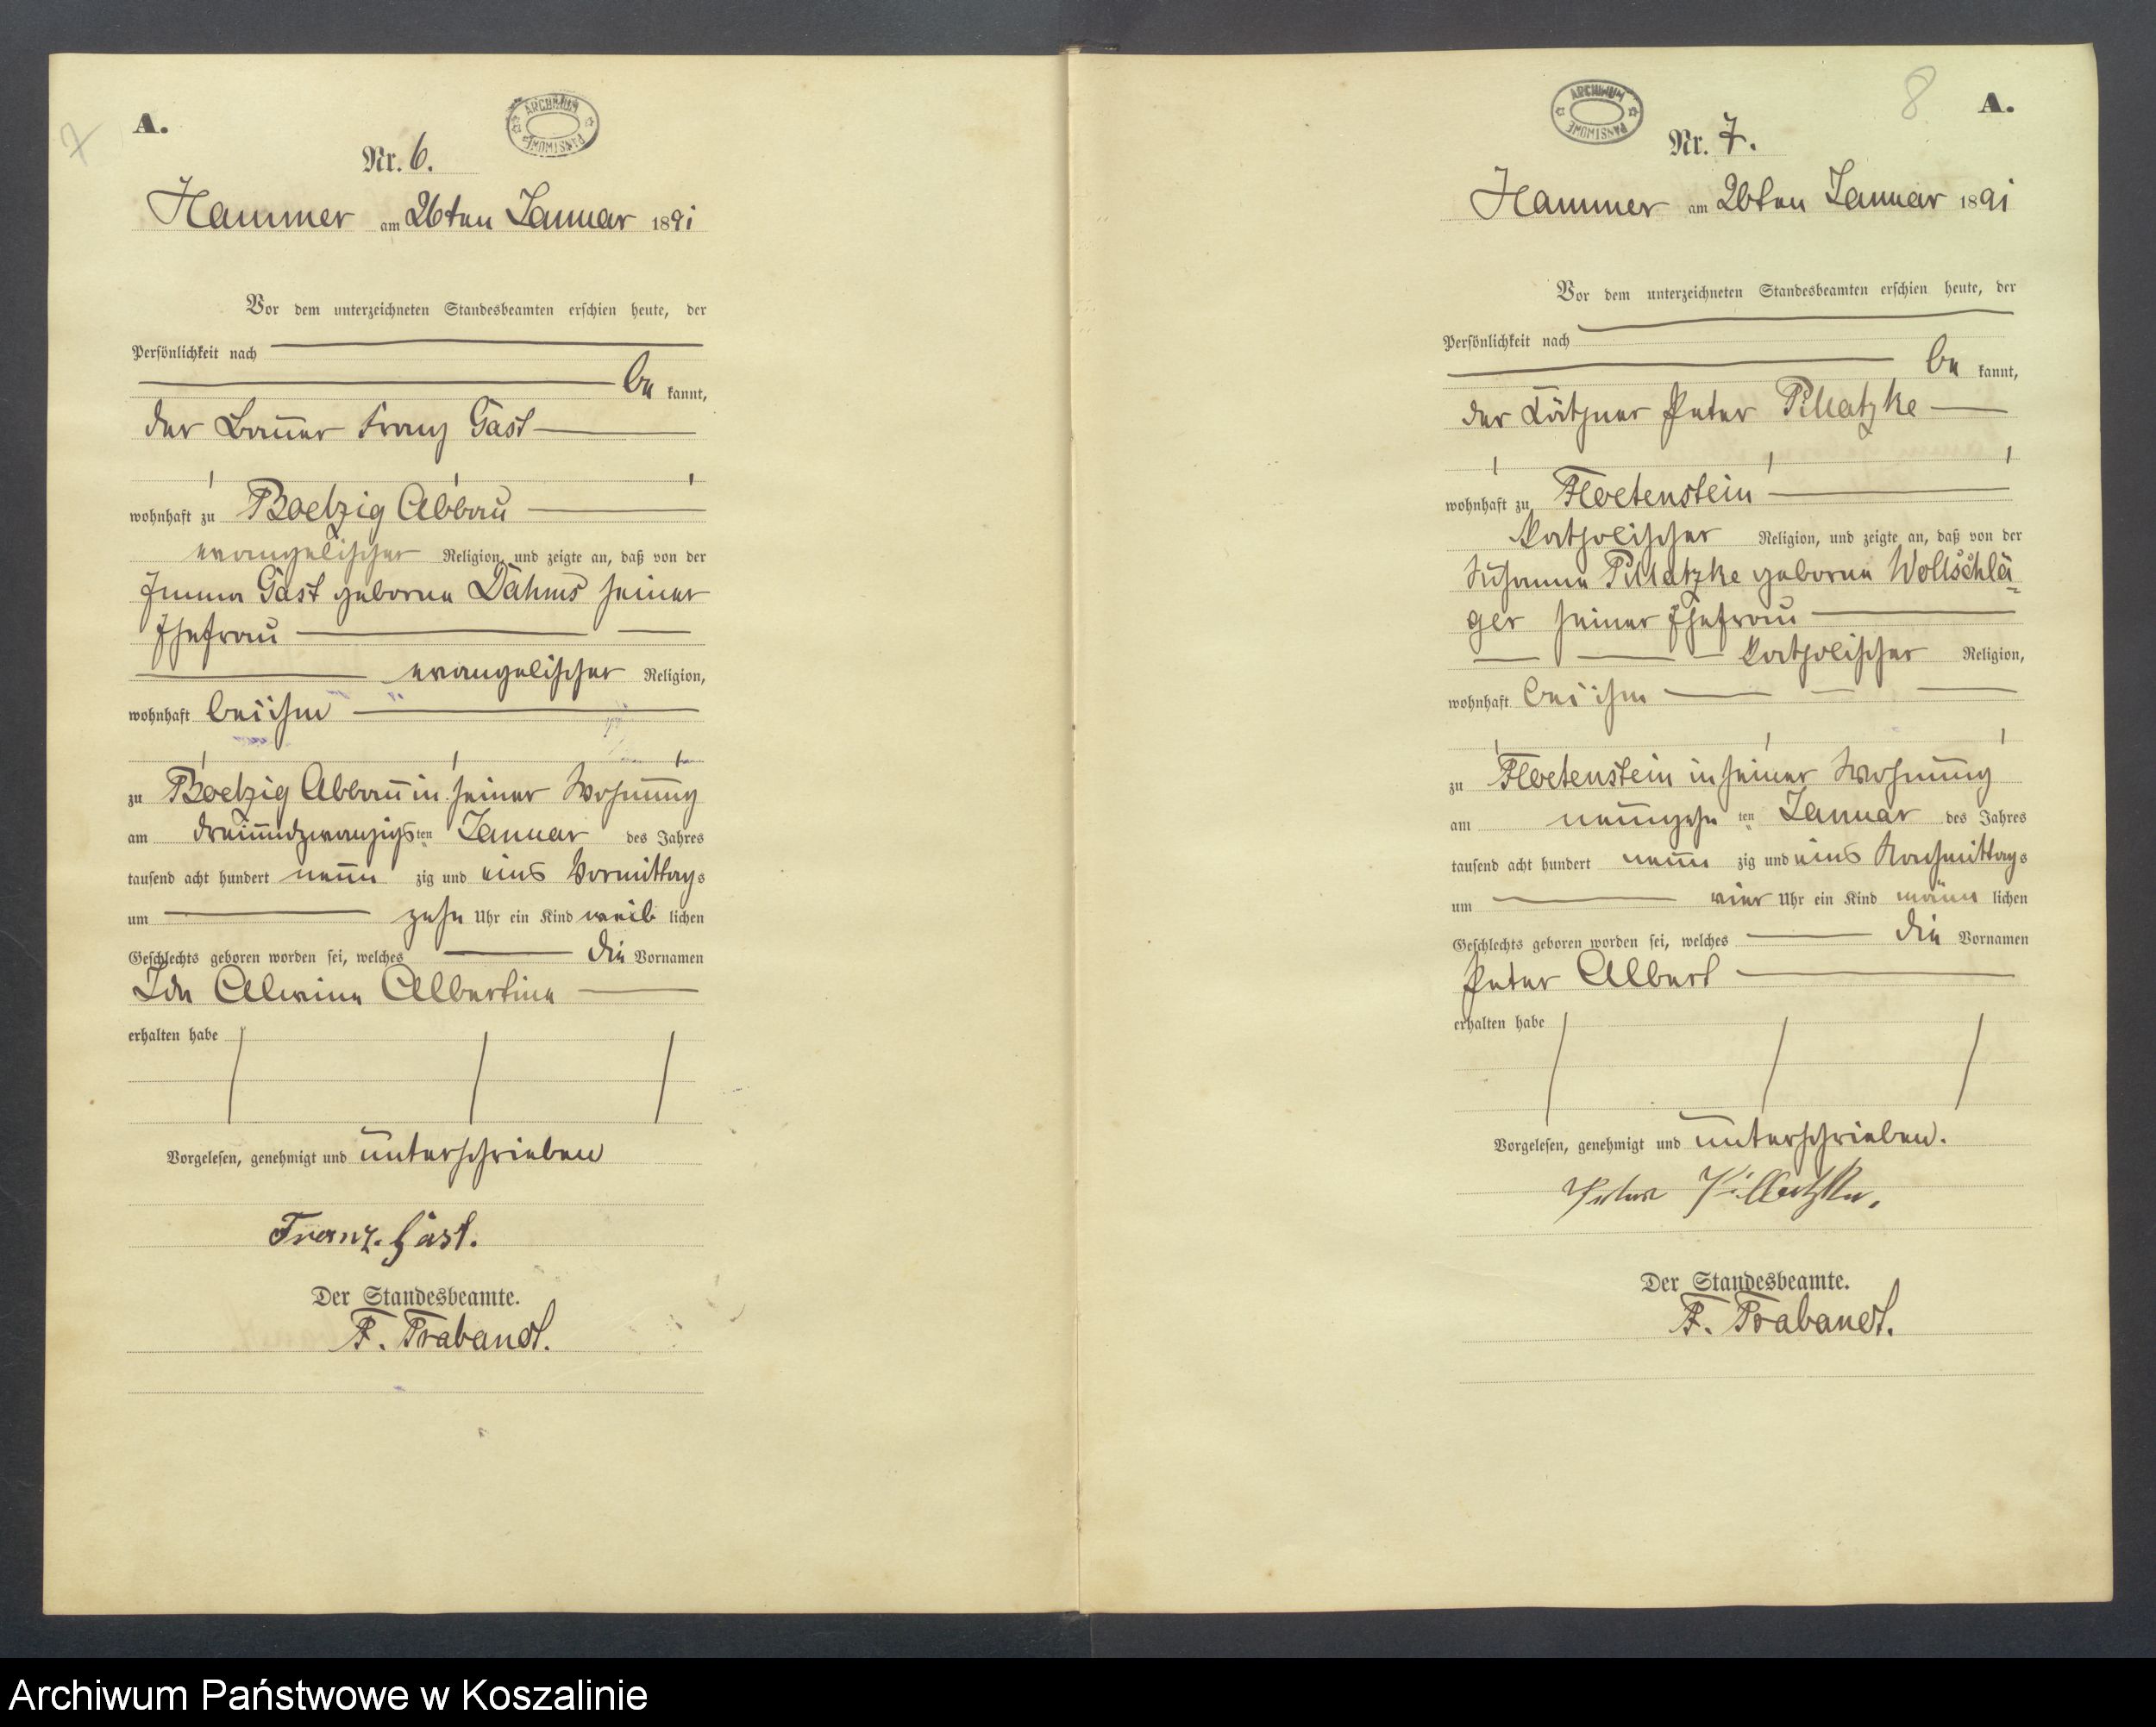 7
A.
ARCHIWUM PAŃSTWOWE
Nr. 6.
Hammer am 26ten Januar 1891
Vor dem unterzeichneten Standesbeamten erschien heute, der
Persönlichkeit nach
be kannt,
der Bauer Franz Gast
wohnhaft zu Boetzig Abbau
evangelischer Religion, und zeigte an, daß von der
Emma Gast geborne Dahms seiner
Ehefrau
evangelischer Religion,
wohnhaft bei ihm
zu Boetzig Abbau in seiner Wohnung
am dreiundzwanzigsten Januar des Jahres
tausend acht hundert neun zig und eins Vormittags
um zehn Uhr ein Kind weib lichen
Geschlechts geboren worden sei, welches die Vornamen
Ida Alwine Albertine
erhalten habe
Vorgelesen, genehmigt und unterschrieben
Franz. Gast.
Der Standesbeamte.
F. Trabandt.
8
A.
ARCHIWUM PAŃSTWOWE
Nr. 7.
Hammer am 26ten Januar 1891
Vor dem unterzeichneten Standesbeamten erschien heute, der
Persönlichkeit nach
be kannt,
der Käthner Peter Pillatzke
wohnhaft zu Floetenstein
katholischer Religion, und zeigte an, daß von der
Susanna Pillatzke geborne Wollschlä=
ger seiner Ehefrau
katholischer Religion,
wohnhaft bei ihm
zu Floetenstein in seiner Wohnung
am neunzehn ten Januar des Jahres
tausend acht hundert neun zig und eins Nachmittags
um vier Uhr ein Kind männ lichen
Geschlechts geboren worden sei, welches die Vornamen
Peter Albert
erhalten habe
Vorgelesen, genehmigt und unterschrieben.
Peter Pillatzke.
Der Standesbeamte.
F. Trabandt.
Archiwum Państwowe w Koszalinie